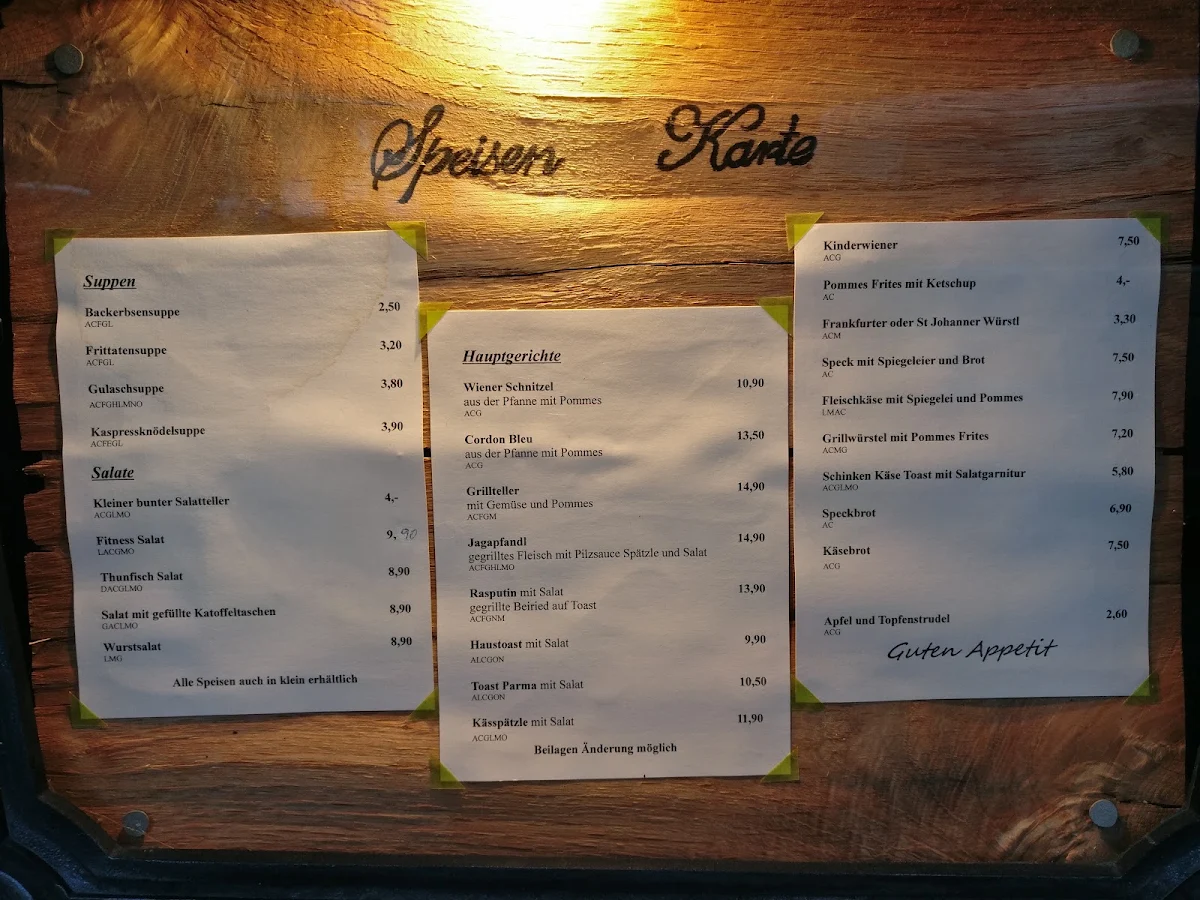 Speisen Karte
Suppen
Backerbsensuppe 2,50
ACFGL
Frittatensuppe 3,20
ACFGL
Gulaschsuppe 3,80
ACFGHLMNO
Kaspressknödelsuppe 3,90
ACFEGL
Salate
Kleiner bunter Salatteller 4,-
ACGLMO
Fitness Salat 9,90
LACGMO
Thunfisch Salat 8,90
DACGLMO
Salat mit gefüllte Katoffeltaschen 8,90
GACLMO
Wurstsalat 8,90
LMG
Alle Speisen auch in klein erhältlich
Hauptgerichte
Wiener Schnitzel 10,90
aus der Pfanne mit Pommes
ACG
Cordon Bleu 13,50
aus der Pfanne mit Pommes
ACG
Grillteller 14,90
mit Gemüse und Pommes
ACFGM
Jagapfandl 14,90
gegrilltes Fleisch mit Pilzsauce Spätzle und Salat
ACFGHLMO
Rasputin mit Salat 13,90
gegrillte Beiried auf Toast
ACFGNM
Haustoast mit Salat 9,90
ALCGON
Toast Parma mit Salat 10,50
ALCGON
Kässpätzle mit Salat 11,90
ACGLMO
Beilagen Änderung möglich
Kinderwiener 7,50
ACG
Pommes Frites mit Ketschup 4,-
AC
Frankfurter oder St Johanner Würstl 3,30
ACM
Speck mit Spiegeleier und Brot 7,50
AC
Fleischkäse mit Spiegelei und Pommes 7,90
LMAC
Grillwürstel mit Pommes Frites 7,20
ACMG
Schinken Käse Toast mit Salatgarnitur 5,80
ACGLMO
Speckbrot 6,90
AC
Käsebrot 7,50
ACG
Apfel und Topfenstrudel 2,60
ACG
Guten Appetit